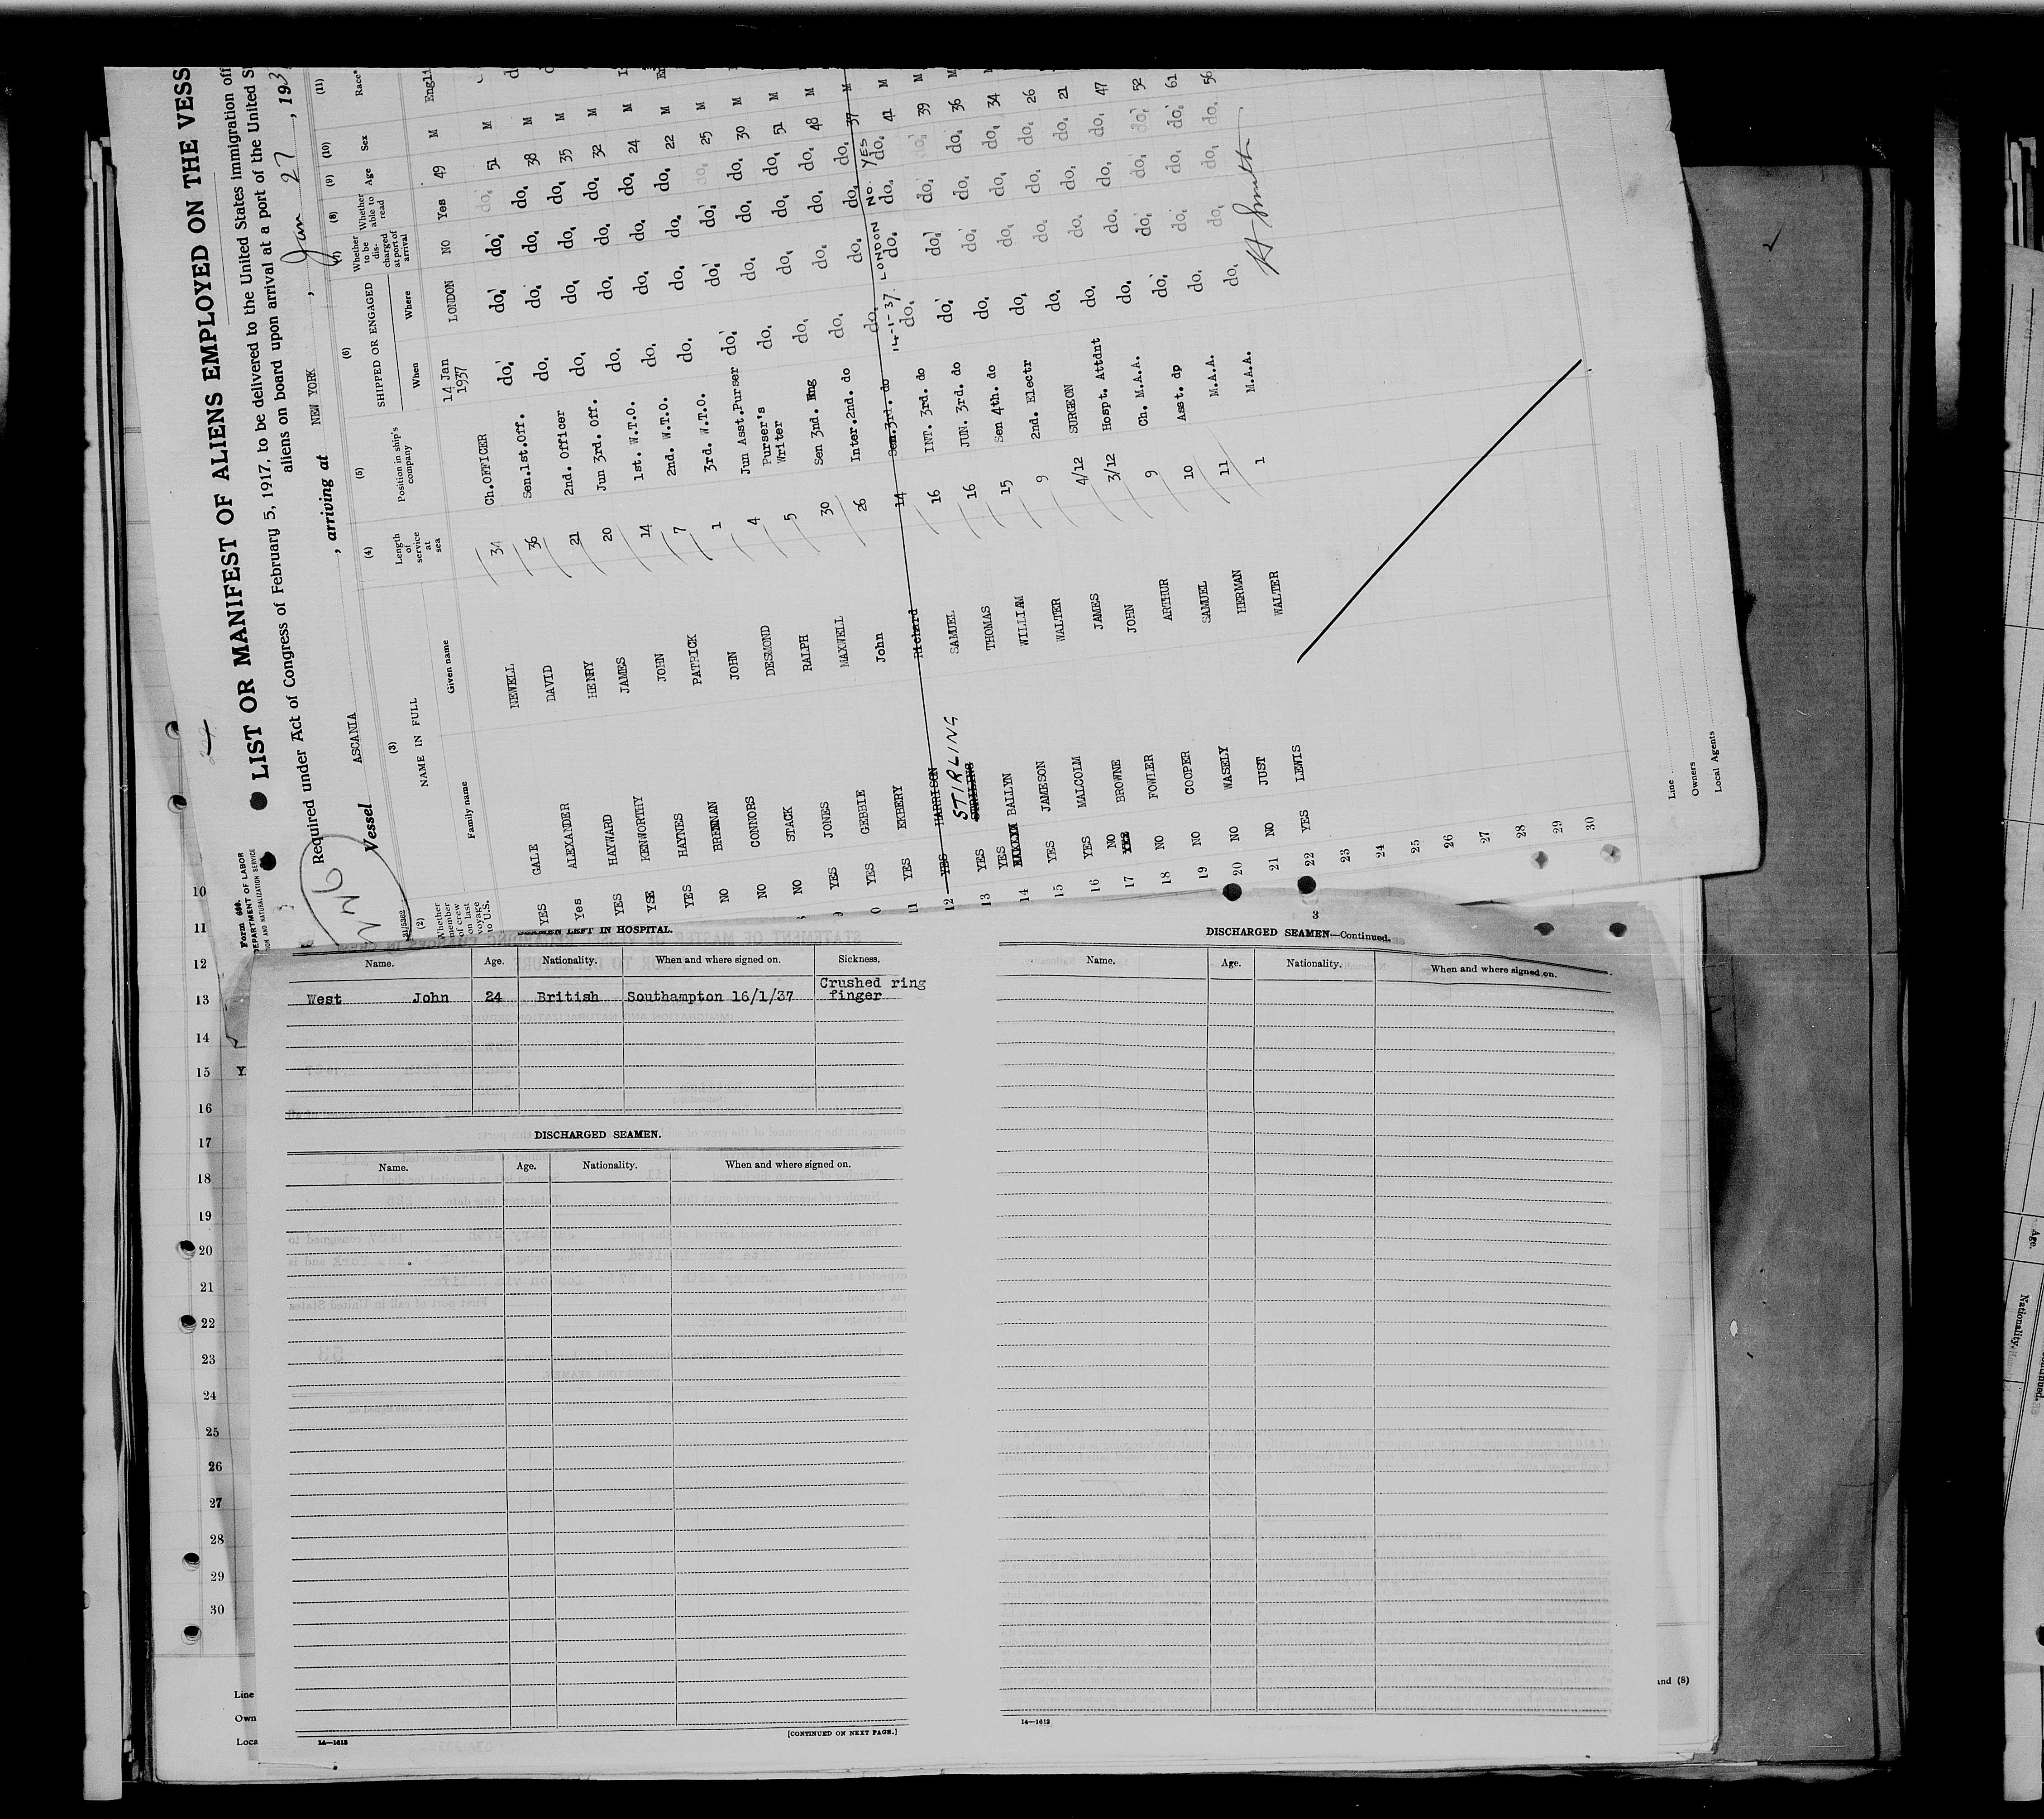 LIST OR MANIFEST OF ALIENS EMPLOYED ON THE VESS
Required under Act of Congress of February 5, 1917, to be delivered to the United States immigration off
aliens on board upon arrival at a port of the United S
Form 680.
DEPARTMENT OF LABOR
ION AND NATURALIZATION SERVICE
Vessel ASCANIA , arriving at NEW YORK , Jan 27 , 193
(2) (3) (4) (5) (6) (7) (8) (9) (10) (11)
Whether member of crew on last voyage to U.S.
NAME IN FULL
Family name Given name
Length of service at sea
Position in ship's company
SHIPPED OR ENGAGED
When Where
Whether to be discharged at port of arrival
Whether able to read
Age Sex Race*
YES GALE NEWELL 34 Ch.OFFICER 14 Jan 1937 LONDON NO Yes 49 M Engli
Yes ALEXANDER DAVID 36 Sen.1st.Off. do. do. do. do. 51 M
YES HAYWARD HENRY 21 2nd. Officer do. do. do. do. 38 M
YSE KENWORTHY JAMES 20 Jun 3rd. Off. do. do. do. do. 35 M
YES HAYNES JOHN 14 1st. W.T.O. do. do. do. do. 32 M
NO BRENNAN PATRICK 7 2nd. W.T.O. do. do. do. do. 24 M
NO CONNORS JOHN 1 3rd. W.T.O. do. do. do. do. 22 M
NO STACK DESMOND 4 Jun Asst.Purser do. do. do. do. 25 M
9 YES JONES RALPH 5 Purser's Writer do. do. do. do. 30 M
0 YES GEBBIE MAXWELL 30 Sen 3nd. Eng do. do. do. do. 51 M
11 YES EMBERY John 26 Inter.2nd. do do. do. do. do. 48 M
12 YES HARRISON Richard 14 Sen.3rd. do do. do. do. do. 37 M
14-1-37 LONDON NO. YES
13 YES STIRLING SAMUEL 16 INT. 3rd. do do. do. do. do. 41 M
14 YES BAILYN THOMAS 16 JUN. 3rd. do do. do. do. do. 39 M
15 YES JAMESON WILLIAM 15 Sen 4th. do do. do. do. do. 36 M
16 YES MALCOLM WALTER 9 2nd. Electr do. do. do. do. 34
17 NO BROWNE JAMES 4/12 SURGEON do. do. do. do. 26
18 NO FOWLER JOHN 3/12 Hospt. Attdnt do. do. do. do. 21
19 NO COOPER ARTHUR 9 Ch. M.A.A. do. do. do. do. 47
20 NO WASELY SAMUEL 10 Asst. do do. do. do. do. 52
21 NO JUST HERMAN 11 M.A.A. do. do. do. do. 61
22 YES LEWIS WALTER 1 M.A.A. do. do. do. do. 56
23
24
25
26
27
28
29
30
Line
Owners
Local Agents
10
11
12
13
14
15 Y.
16
17
18
19
20
21
22
23
24
25
26
27
28
29
30
Line
Own
Loca
SEAMEN LEFT IN HOSPITAL.
Name. Age. Nationality. When and where signed on. Sickness.
West John 24 British Southampton 16/1/37 Crushed ring
finger
DISCHARGED SEAMEN.
Name. Age. Nationality. When and where signed on.
14—1613 [CONTINUED ON NEXT PAGE.]
3
DISCHARGED SEAMEN—Continued.
Name. Age. Nationality. When and where signed on.
14—1613
and (8)
Age.
Nationality.